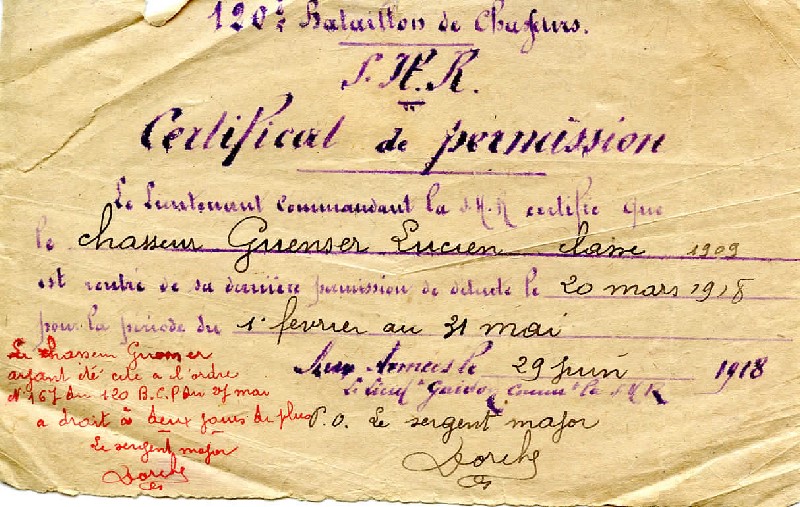 120e Bataillon de Chasseurs.
S.H.R.
Certificat de permission
Le Lieutenant Commandant la S.H.R certifie que
le chasseur Guenser Lucien classe 1909
est rentré de sa dernière permission de détente le 20 mars 1918
pour la période du 1er fevrier au 31 mai
Aux Armées le 29 juin 1918
Le Lieut Gaidoz Commt la SHR
P.O. Le sergent major
Dorche
Le chasseur Guenser
ayant été cité a l'ordre
N°167 du 120 B.C.P du 27 mai
a droit à deux jours de plus
Le sergent major
Dorche